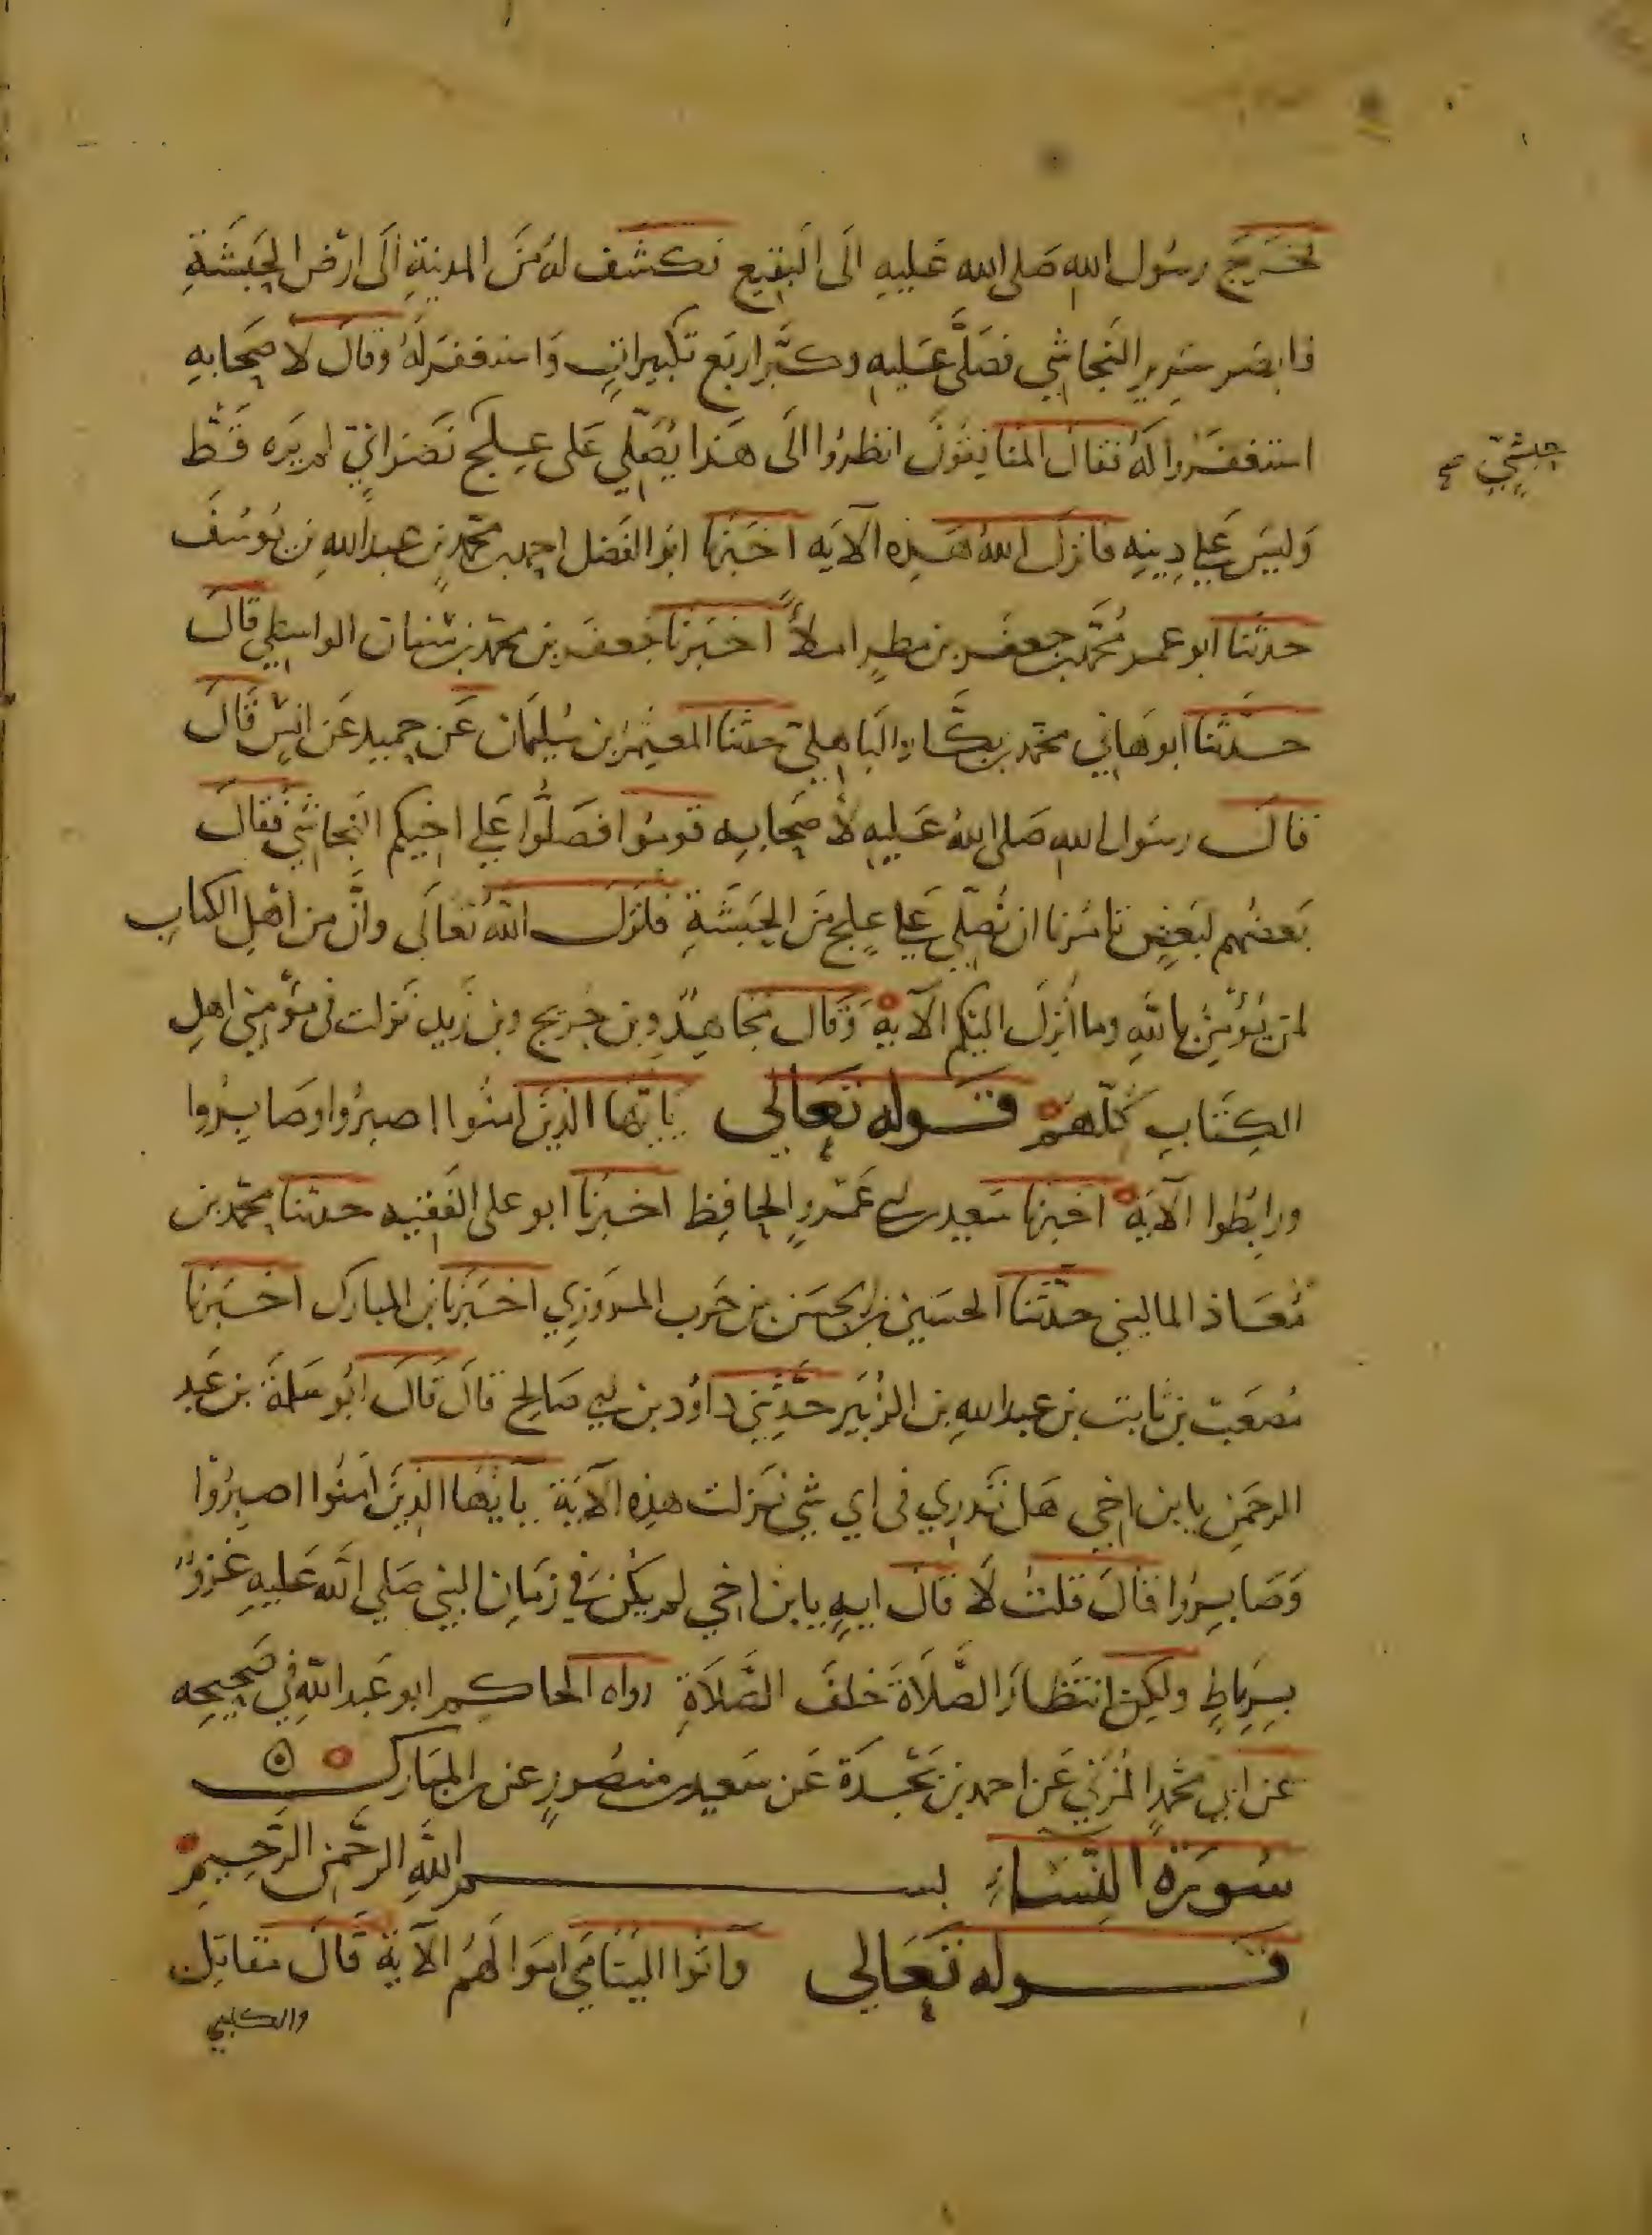 فخرج رسول الله صلى الله عليه الى البقيع فكشف له من المدينة الى ارض الحبشة
فابصر سرير النجاشي فصلى عليه وكبر اربع تكبيرات واستغفر له وقال لاصحابه
استغفروا له فقال المنافقون انظروا الى هذا يصلي على علج نصراني لم يره قط
حبشي صح
وليس على دينه فانزل الله هذه الآيه اخبرنا ابو الفضل احمد بن محمد بن عبد الله بن يوسف
حدثنا ابو عمر محمد بن جعفر بن مطر املاً اخبرنا جعفر بن محمد بن سنان الواسطي قال
حدثنا ابو هاني محمد بن بكار الباهلي حدثنا المعتمر بن سليمان عن حميد عن انس قال
قال رسول الله صلى الله عليه لاصحابه قوموا فصلوا على اخيكم النجاشي فقال
بعضهم لبعض تامرنا ان نصلي على علج من الحبشة فانزل الله تعالى وان من اهل الكتاب
لمن يؤمن بالله وما انزل اليكم الآية وقال مجاهد وبن جريج وبن زيد نزلت في مؤمني اهل
الكتاب كلهم قوله تعالى يايها الذين امنوا اصبروا وصابروا
ورابطوا الآية اخبرنا سعيد بن ابي عمرو الحافظ اخبرنا ابو على الفقيه حدثنا محمد بن
معاذ الماليني حدثنا الحسين بن الحسن بن حرب المروزي اخبرنا بن المبارك اخبرنا
مصعب بن ثابت بن عبد الله بن الزبير حدثني داوُد بن ابي صالح قال قال ابو سلمة بن عبد
الرحمن يا بن اخي هل تدري فى اي شي نزلت هذه الآية يايها الذين امنوا اصبروا
وصابروا قال قلت لا قال ايه يا بن اخي لم يكن في زمان النبي صلي الله عليه غزوٌ
برباط ولكن انتظار الصلاة خلف الصلاة رواه الحاكم ابو عبد الله في صحيحه
عن ابي محمد المزني عن احمد بن نجدة عن سعيد بن منصور عن بن المبارك
سورة النساء بسم الله الرحمن الرحيم
قوله تعالى وآتوا اليتامي اموالهم الآية قال مقاتل
والكلبي